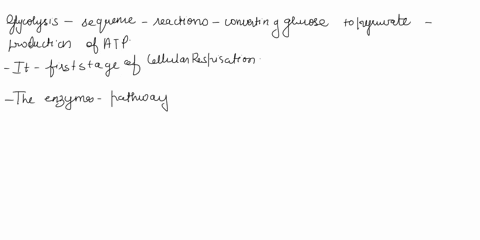 Glycolysis - sequence - reactions - converting glucose to pyruvate -
production of ATP.
- It - first stage of Cellular Respiration.
- The enzymes - pathway